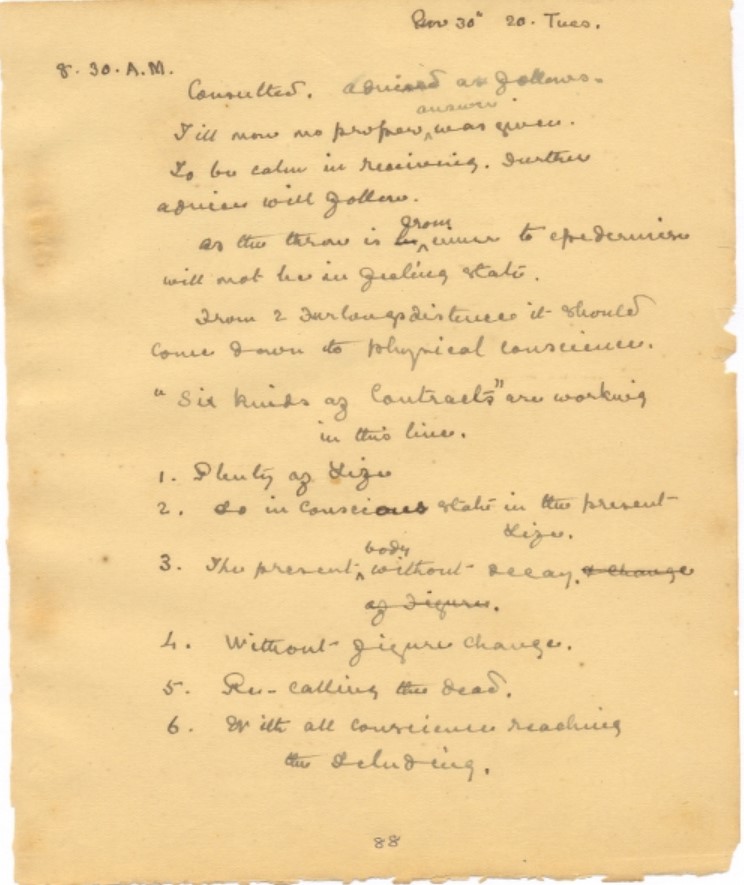 Nov 30" 20. Tues.
8. 30. A.M.
Consulted. advised as follows.
answer
Till now no proper ‸ was given.
To be calm in receiving. Further
advice will follow.
from
as the throw is ‸ inner to epidermise
will not be in feeling state.
From 2 Furlongs distence it should
come down to physical conscience.
"Six kinds of Contracts" are working
in this line.
1. Plenty of Life
2. do in conscious state in the present
Life.
body
3. The present ‸ without decay. & change
of Figure.
4. Without figure change.
5. Re-calling the dead.
6. With all conscience reaching
the
88